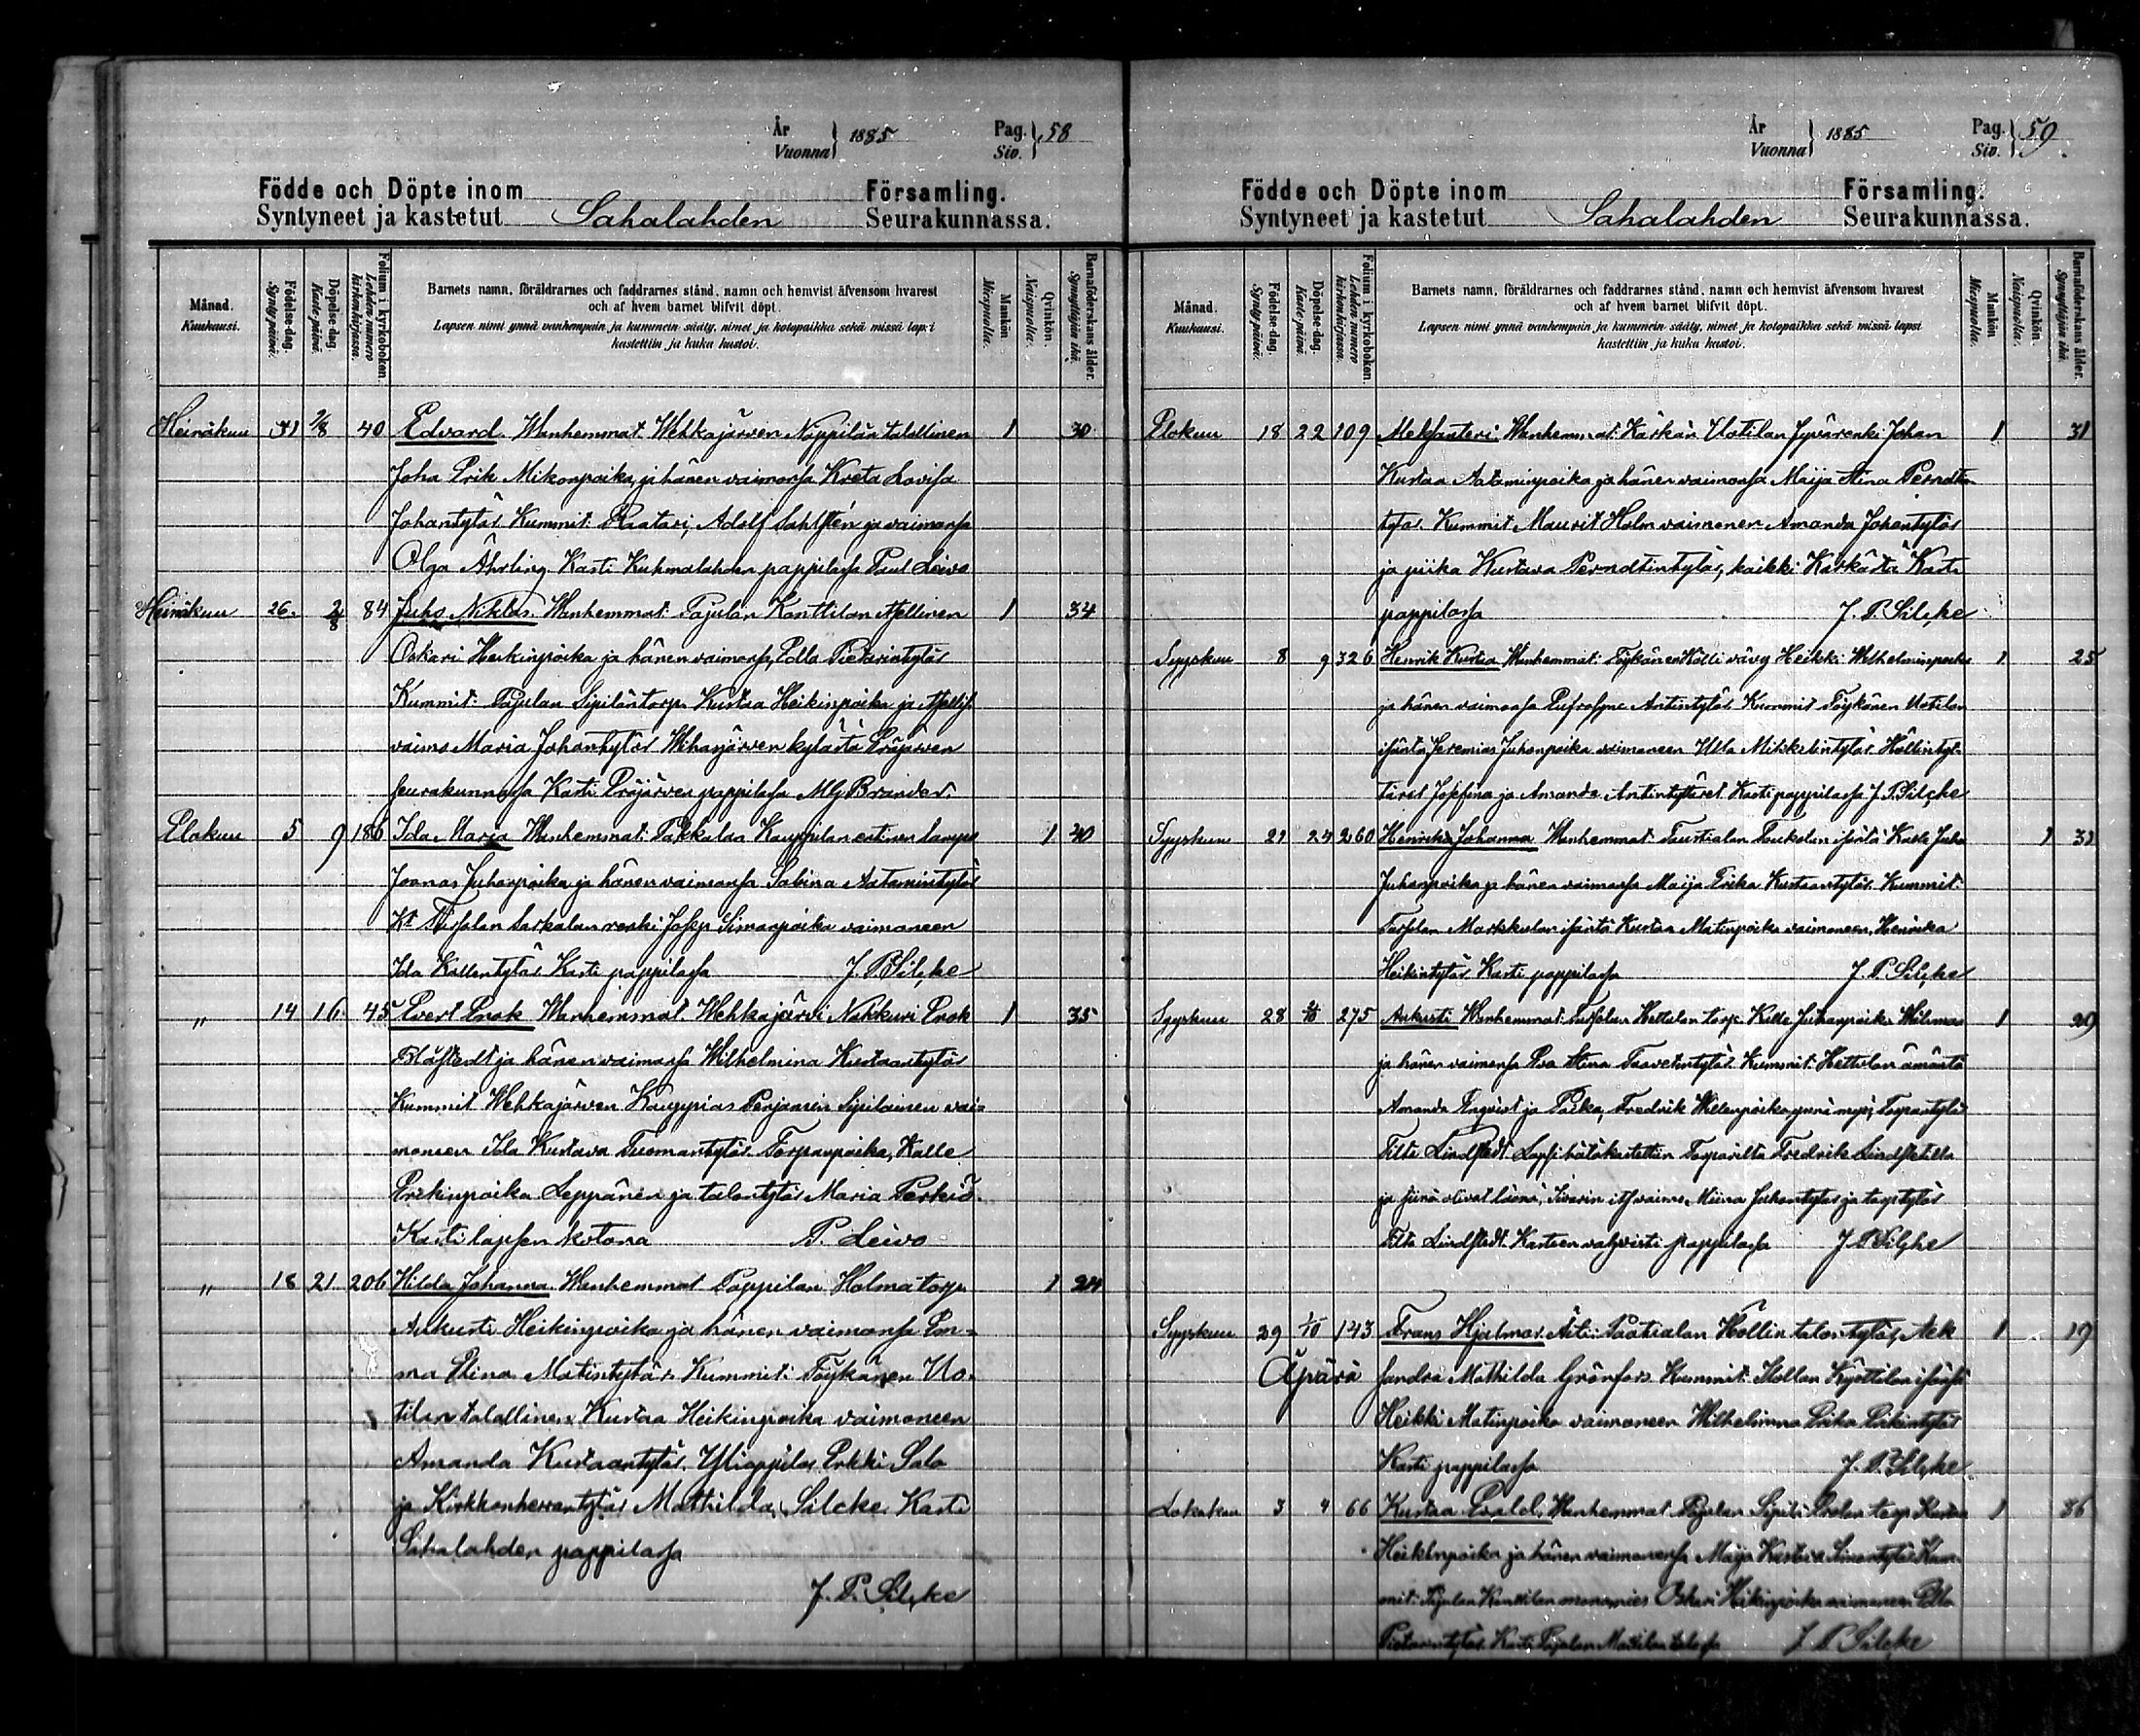 År
Vuonna } 1885 Pag.
Siv. } 58
Födde och Döpte inom Församling.
Syntyneet ja kastetut Sahalahden Seurakunnassa.
Månad.
Kuukausi.
Födelse-dag.
Syntypäivä.
Döpelse-dag.
Kastepäivä.
Folium i kyrkoboken.
Lehden numero kirkonkirjassa.
Barnets namn, föräldrarnes och faddrarnes stånd, namn och hemvist äfvensom hvarest
och af hvem barnet blifvit döpt.
Lapsen nimi ynnä vanhempain ja kummein sääty, nimet ja kotopaikka sekä missä lapsi
kastettiin ja kuka kastoi.
Mankön
Miespuolia.
Qvinkön.
Naispuolia.
Barnaföderskans ålder.
Synnyttäjän ikä.
Heinäkuu 31 2/8 40 Edvard. Wanhemmat. Wehkajärven Nappilän talollinen 1 30
Joha Erik Mikonpoika, ja hänen vaimonsa Kreta Lovisa
Johantytär Kummit: Räätäri, Adolf Sahlstén ja vaimonsa
Olga Åhrling Kasti Kuhmalahden pappilassa Paul Leivo
Heinäkuu 26. 2/8 84 Juho Niklas. Wanhemmat: Pajulan Kanttilan itsellinen 1 34
Oskari Heikinpoika ja hänen vaimonsa, Edla Pietarintytär
Kummit: Pajulan Sipilän torp. Kustaa Heikinpoika ja itsellis
vaimo Maria Johantytär Wihasjärven kylästä Eräjärven
seurakunnassa Kasti Eräjärven pappilassa MG Brander.
Elokuu 5 9 186 Ida Maria Wanhemmat: Pakkalaa Kauppilan entinen lampuo 1 40
Joonas Juhanpoika ja hänen vaimonsa Sabina Aatamintytär
Kt Tursolan Sarkalan renki Josep Simonpoika vaimoneen
Ida Kallentytär Kasti pappilassa J. P. Silcke
" 14 16 45 Evert Enok Wanhemmat. Wehkajärvi Nahkuri Enok 1 35
Blåfstedt ja hänen vaimonsa Wilhelmina Kustaantytär
Kummit Wehkajärven Kauppias Penjamin Sipiläinen vai=
moneen Ida Kustava Tuomantytär Torpanpoika, Kalle
Erkinpoika Leppänen ja talontytär Maria Perkiö.
Kasti lapsen kotona P. Leivo
" 18 21 206 Hilda Johanna Wanhemmat Pappilan Holma torp. 1 24
Aukusti Heikinpoika ja hänen vaimonsa Em=
ma Elina Matintytär. Kummit: Töykänen Uo=
tilan talollinen Kustaa Heikinpoika vaimoneen
Amanda Kustaantytär. Ylioppilas Erkki Salo
ja Kirkkoherrantytär Mathilda Silcke Kasti
Sahalahden pappilassa
J. P. Silcke
År
Vuonna } 1885 Pag.
Siv. } 59.
Födde och Döpte inom Församling.
Syntyneet ja kastetut Sahalahden Seurakunnassa.
Månad.
Kuukausi.
Födelse-dag.
Syntypäivä.
Döpelse-dag.
Kastepäivä.
Folium i kyrkoboken.
Lehden numero kirkonkirjassa.
Barnets namn, föräldrarnes och faddrarnes stånd, namn och hemvist äfvensom hvarest
och af hvem barnet blifvit döpt.
Lapsen nimi ynnä vanhempain ja kummein sääty, nimet ja kotopaikka sekä missä lapsi
kastettiin ja kuka kastoi.
Mankön
Miespuolia.
Qvinkön.
Naispuolia.
Barnaföderskans ålder.
Synnyttäjän ikä.
Elokuu 18 22 109 Aleksanteri Wanhemmat: Kärkän Uotilan Jyvärenki Johan 1 31
Kustaa Aataminpoika ja hänen vaimonsa Maija Stina Perndtin
tytär. Kummit Maurit Holm vaimonen Amanda Johantytär
ja piika Kustava Perndtintytär, kaikki Kärkästä Kasti
pappilassa J. P. Silcke
Syyskuu 8 9 326 Henrik Kustaa Wanhemmat: Töykänen Kölli vävy Heikki Wilhelminpoika 1 25
ja hänen vaimonsa Eufrosyne Antintytär Kummit Töykänen Uotilan
isäntä Jeremias Juhanpoika vaimoneen Ulla Mikkelintytär Höllintyt=
täret Josefina ja Amanda Antintyttäret Kasti pappilassa J. P. Silcke
Syyskuu 21 24 260 Henrika Johanna Wanhemmat Taustialan Toukolan isäntä Kalle Juho 1 31
Juhanpoika ja hänen vaimonsa Maija Erika Kustaantytär. Kummit:
Tursolan Markkulan isäntä Kustaa Matinpoika vaimoneen, Henrika
Heikintytär Kasti pappilassa J. P. Silcke
Syyskuu 28 275 Aukusti Wanhemmat: Tursolan Hettulan torp. Kalle Juhanpoika 1 29
ja hänen vaimonsa Eva Stina Taavetintytär Kummit: Hettulan ämäntä
Amanda ja Poika, Fredrik
Tilta Lindstedt. Lapsi hätäkastettiin Torparilta Fredrik Lindstetilta
ja siinä olivat läsnä, vaimo, Miina Juhantytär ja torptytär
Tilta Lindstedt. Kasteen vahvisti pappilassa J. P. Silcke
Syyskuu 29 1/10 143 Frans Hjalmar. Äiti: Saatialan Höllin talontytär, Alek 1 19
Äpärä sandra Mathilda Grönfors Kummit: Köttilän isäntä
Heikki Matinpoika vaimoneen Wilhelmina Erika Erkintytär
Kasti pappilassa J. P. Silcke
Lokakuu 3 4 66 Kustaa Evald. Wanhemmat Pajulan Sipilä torp Kustaa 1 36
Heikinpoika ja hänen vaimonsa Maija Kustava Simontytär Kum=
mit: Pajulan Kanttilan Oskari Heikinpoika vaimoneen Edla
Pietarintytär. Kasti Pajulan Mattilan talossa J. P. Silcke